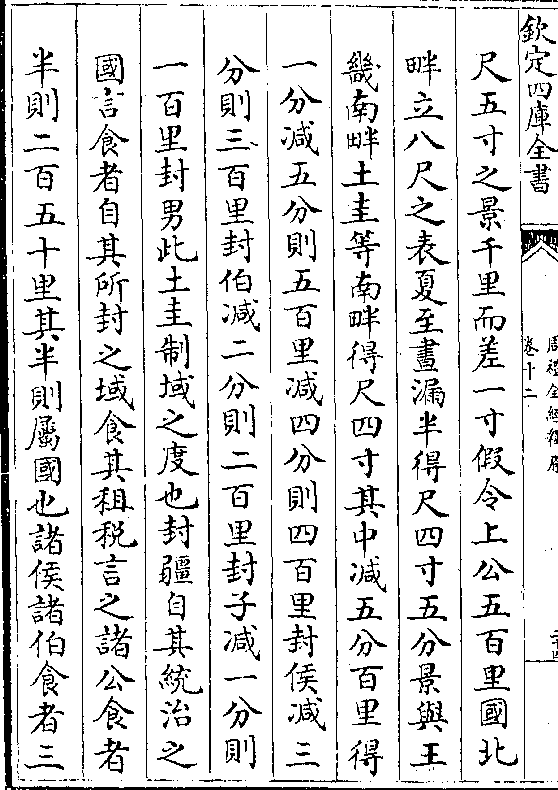 欽定四庫全書
卷十二
尺五寸之景千里而差一寸假令上公五百里國北
畔立八尺之表夏至晝漏半得尺四寸五分景與王
畿南畔土圭等南畔得尺四寸其中減五分百里得
一分減五分則五百里減四分則四百里封侯減三
分則三百里封伯減二分則二百里封子減一分則
一百里封男此土圭制域之度也封疆自其統治之
國言食者自其所封之域食其租税言之諸公食者
半則二百五十里其半則屬國也諸侯諸伯食者三